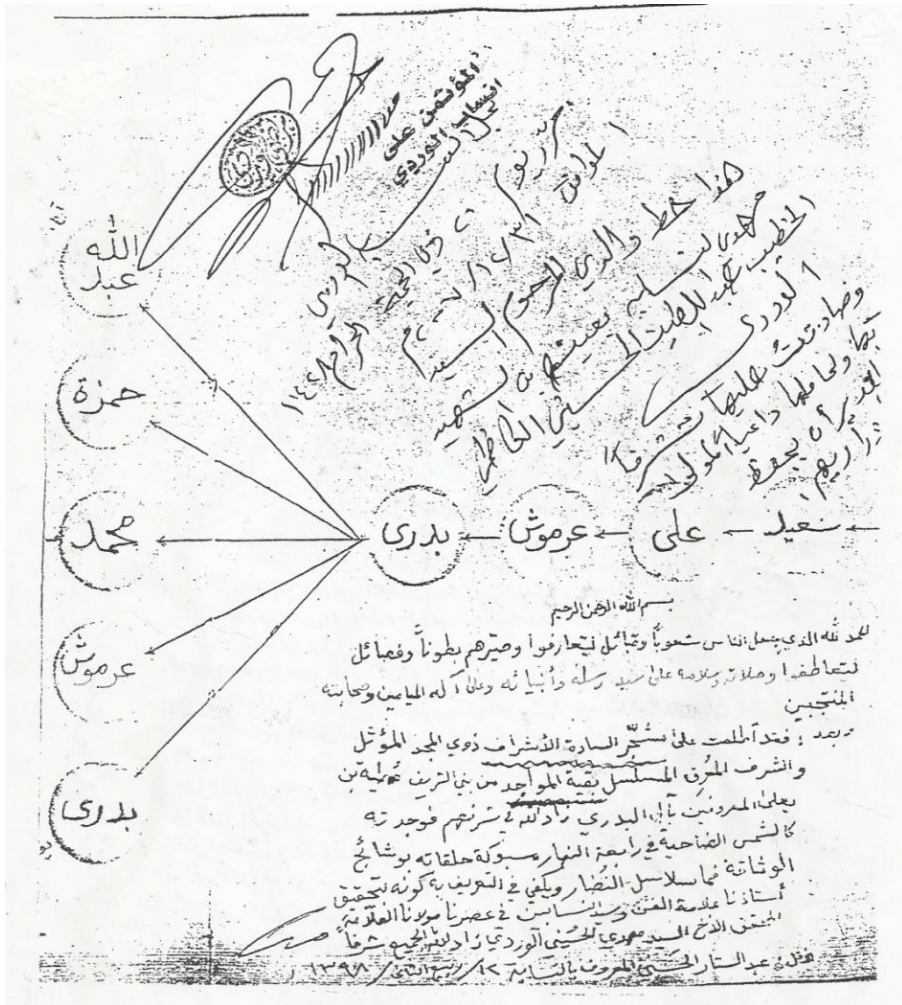 المؤتمن على
انساب الوردي
٢٠٠٧/١٢/٣١
ذي الحجة الحرام ١٤٢٨
هذا خط والدي المرحوم السيد
مهدي
الخطيب عبد اللطيف الحسيني الكاظمي
الوردي
وصادقت عليها تشرفاً
بها ولحاملها داعياً المولى
القدير أن يحفظ
ذراريهم
عبد الله
حمزة
محمد
عرموش
بدري
سعيد
علي
عرموش
بدري
بسم الله الرحمن الرحيم
الحمد لله الذي جعل الناس شعوباً وقبائل ليتعارفوا وصيرهم بطوناً وفصائل
ليتعاطفوا وصلاته وسلامه على سيد رسله وأنبيائه وعلى آله الميامين وصحابته
المنتجبين
وبعد ؛ فقد اطلعت على مشجّر السادة الأشراف ذوي المجد المؤثل
والشرف المعرق المسلسل بقية المواجد من بني الشريف عطية بن
يعلى المعروفين بآل البدري زاد الله في شرفهم فوجدته
كالشمس الضاحية في رابعة النهار مسبوكة حلقاته بوشائج
الوثاقة فما سلاسل النُضار ويكفي في التعريف به كونه بتحقيق
أستاذنا علامة الفن وسيد النسابين في عصرنا مولانا العلّامة
المحقق الأخ السيد مهدي الحسيني الوردي زاد الله الجميع شرفاً
عبد الستار الحسني المعروف بالنسابة ١٢/ ربيع الثاني/ ١٣٩٨